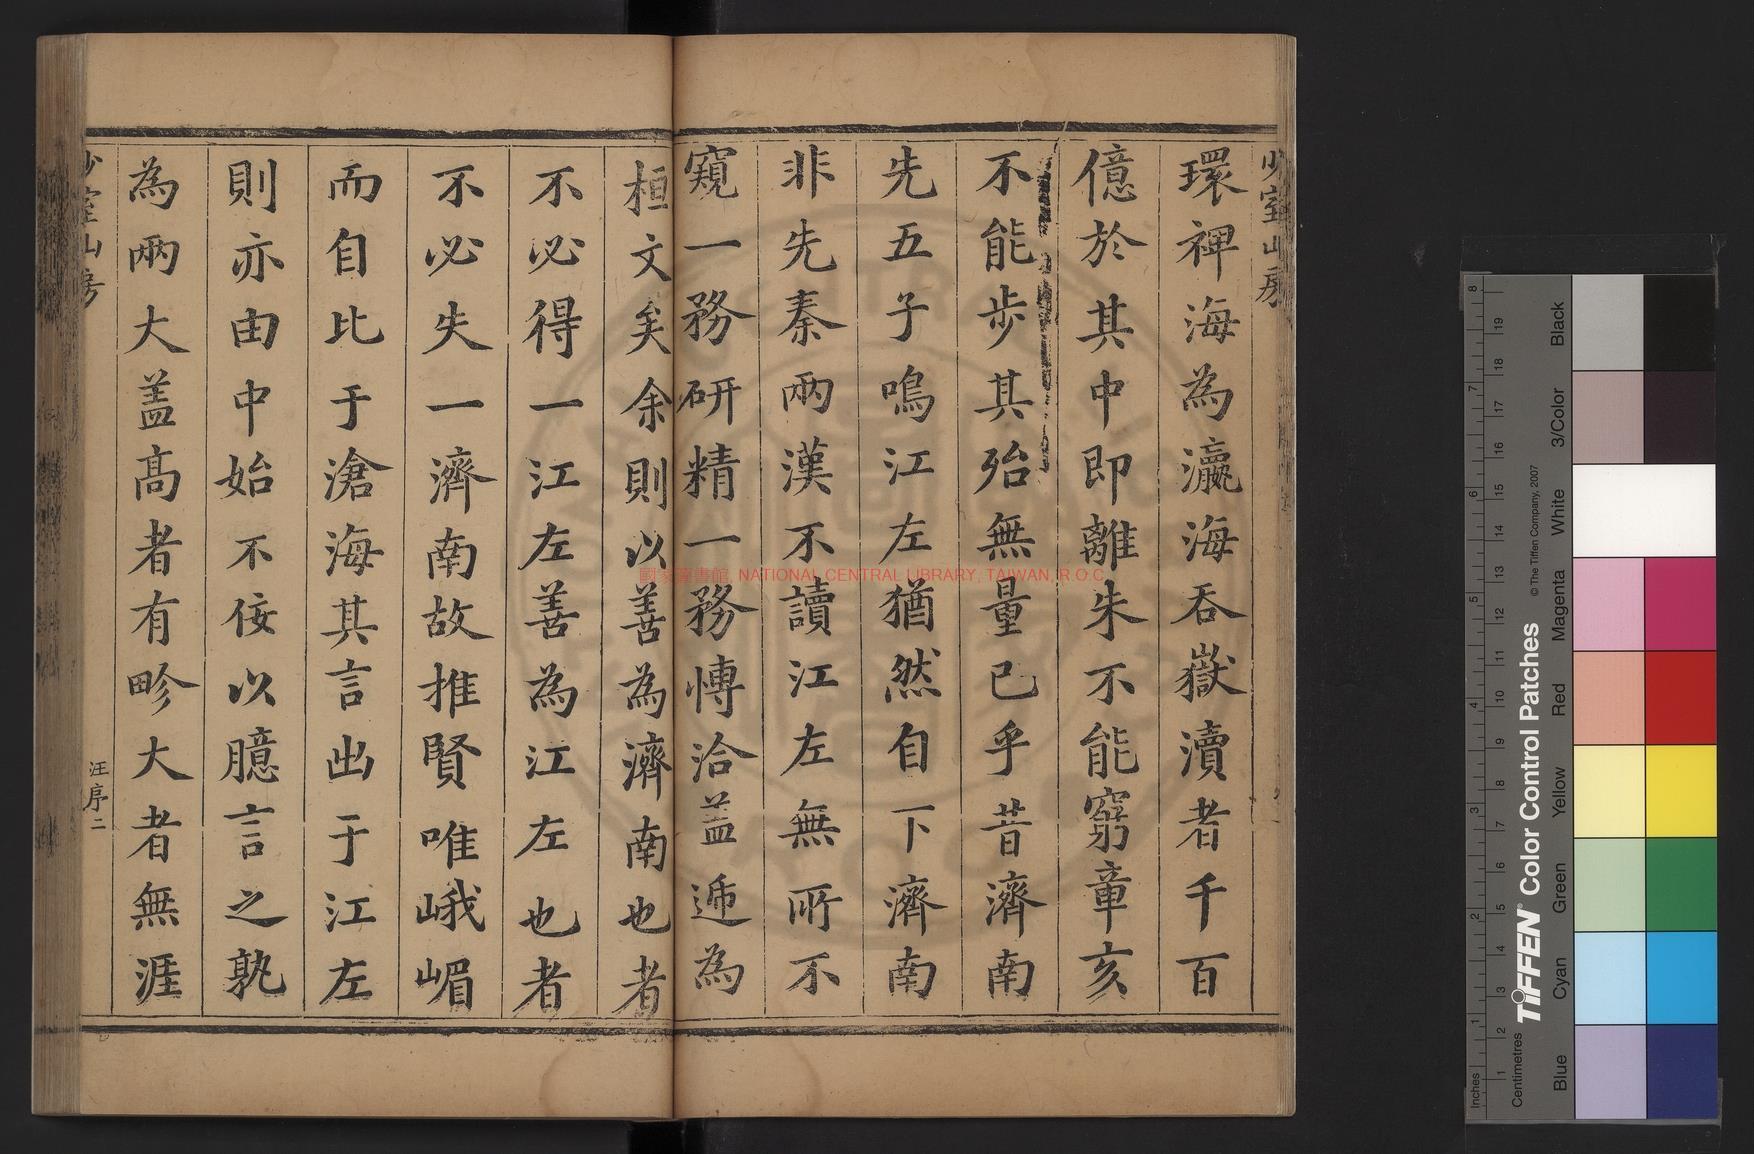 少室山房
環裨海為瀛海吞嶽瀆者千百
億於其中即離朱不能窮章亥
不能步其殆無量已乎昔濟南
先五子鳴江左猶然自下濟南
非先秦兩漢不讀江左無所不
窺一務研精一務博洽盖遞為
桓文矣余則以善為濟南也者
不必得一江左善為江左也者
不必失一濟南故推賢唯峨嵋
而自比于滄海其言出于江左
則亦由中始不佞以臆言之孰
為兩大盖高者有畛大者無涯
少室山房
汪序二
國家圖書館, NATIONAL CENTRAL LIBRARY, TAIWAN, R.O.C.
TIFFEN Color Control Patches
© The Tiffen Company, 2007
Inches
Centimetres
Blue
Cyan
Green
Yellow
Red
Magenta
White
3/Color
Black